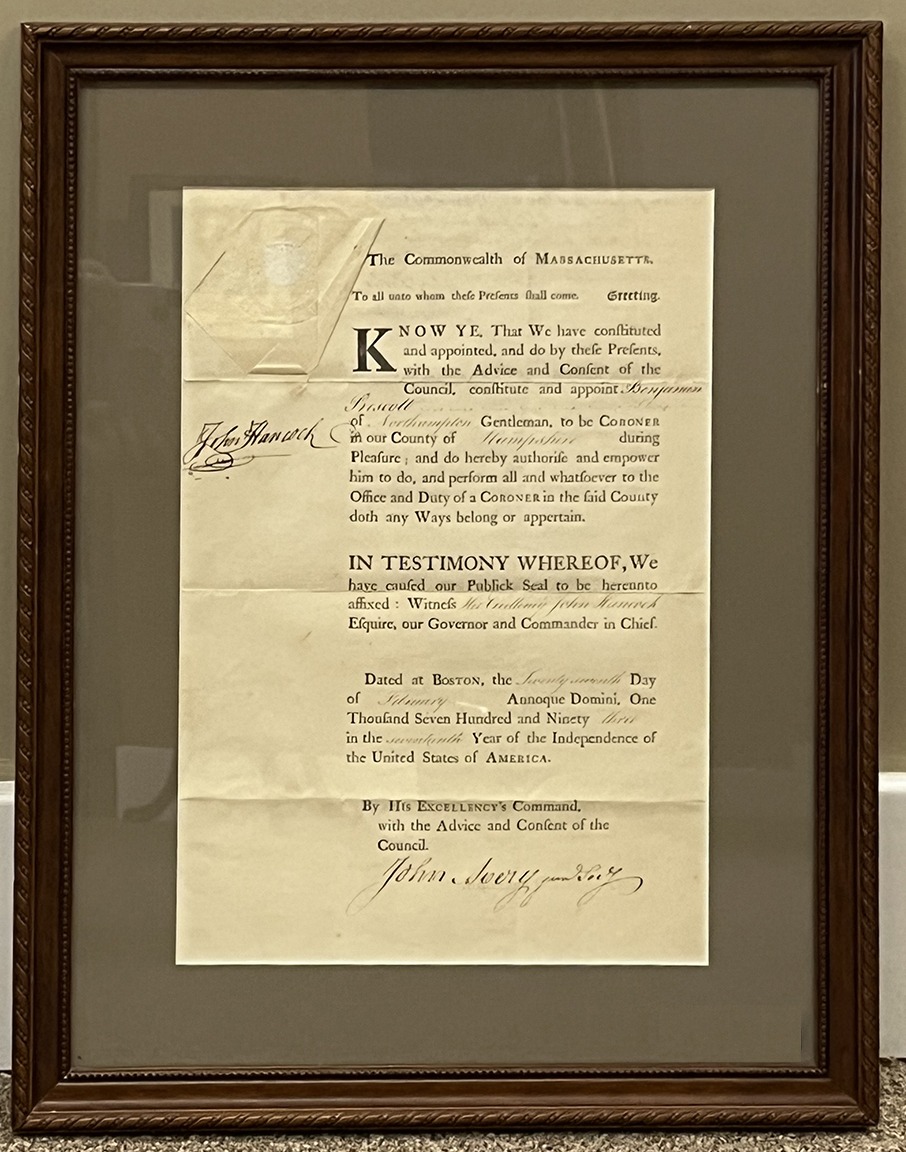 The Commonwealth of MASSACHUSETTS.
To all unto whom theſe Preſents ſhall come, Greeting.
KNOW YE, That We have conſtituted
and appointed, and do by theſe Preſents,
with the Advice and Conſent of the
Council, conſtitute and appoint Benjamin
Prescott
of Northampton Gentleman, to be CORONER
in our County of Hampshire during
Pleaſure; and do hereby authoriſe and empower
him to do, and perform all and whatſoever to the
Office and Duty of a CORONER in the ſaid County
doth any Ways belong or appertain.
John Hancock
IN TESTIMONY WHEREOF, We
have cauſed our Publick Seal to be hereunto
affixed: Witneſs His Excellency John Hancock
Eſquire, our Governor and Commander in Chief.
Dated at BOSTON, the Twenty seventh Day
of February Annoque Domini, One
Thouſand Seven Hundred and Ninety three
in the seventeenth Year of the Independence of
the United States of AMERICA.
By HIS EXCELLENCY'S Command,
with the Advice and Conſent of the
Council.
John Avery junr Secy